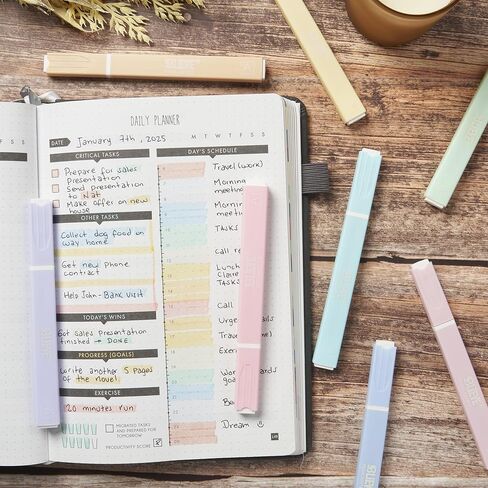 DAILY PLANNER
DATE January 7th, 2025
M T W T F S S
CRITICAL TASKS
Prepare for sales
presentation
Send presentation
to Nat
Make offer on new
house
OTHER TASKS
Collect dog food on
way home
Get new phone
contract
Help John - Bank visit
TODAY'S WINS
Got sales presentation
finished → DONE
PROGRESS (GOALS)
Write another 5 pages
of the novel
EXERCISE
20 minutes run
MIGRATED TASKS
AND PREPARED FOR
TOMORROW
PRODUCTIVITY SCORE
DAY'S SCHEDULE
Travel (work)
Morning
meeting
Morning
meeting
TASKS
Call
Lunch
Claire
TASKS
Call
Urge
Travel
Exer
goals
Dream
T W T F S S